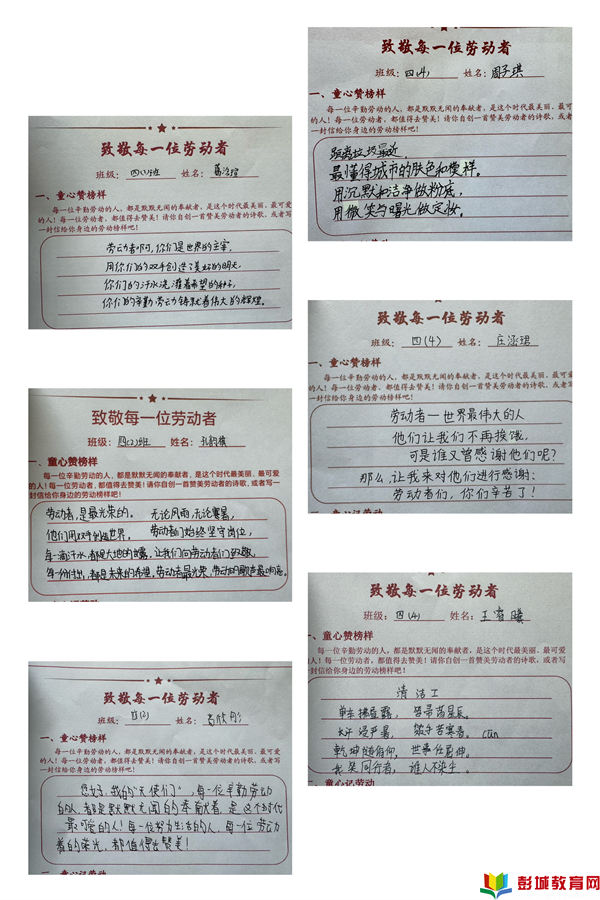 致敬每一位劳动者
班级：四(1)班 姓名：
一、童心赞榜样
每一位辛勤劳动的人，都是默默无闻的奉献者，是这个时代最美丽、最可爱
的人！每一位劳动者，都值得去赞美！请你自创一首赞美劳动者的诗歌，或者写
一封信给你身边的劳动榜样吧！
劳动者啊，你们是世界的主宰，
用你们的双手创造了美好的明天，
你们的汗水浇灌着希望的种子，
你们的辛勤劳动铸就着伟大的辉煌。
致敬每一位劳动者
班级：四(2)班 姓名：
一、童心赞榜样
每一位辛勤劳动的人，都是默默无闻的奉献者，是这个时代最美丽、最可爱
的人！每一位劳动者，都值得去赞美！请你自创一首赞美劳动者的诗歌，或者写一
封信给你身边的劳动榜样吧！
劳动者，是最光荣的。 无论风雨，无论寒暑，
他们用双手创造世界。 劳动者们始终坚守岗位，
每一滴汗水，都是大地的甘露，让我们向劳动者们致敬，
每一份付出，都是未来的希望，劳动者最光荣，劳动的歌声最响亮。
致敬每一位劳动者
班级：四(2) 姓名：
一、童心赞榜样
每一位辛勤劳动的人，都是默默无闻的奉献者，是这个时代最美丽、最可爱
的人！每一位劳动者，都值得去赞美！请你自创一首赞美劳动者的诗歌，或者写
一封信给你身边的劳动榜样吧！
您好，我的“天使们”，每一位辛勤劳动
的人，都是默默无闻的奉献者，是这个时代
最可爱的人！每一位努力生活的人，每一位劳动
者的荣光，都值得去赞美！
致敬每一位劳动者
班级：四(4) 姓名：周子琪
一、童心赞榜样
每一位辛勤劳动的人，都是默默无闻的奉献者，是这个时代最美丽、最可爱
的人！每一位劳动者，都值得去赞美！请你自创一首赞美劳动者的诗歌，或者写
一封信给你身边的劳动榜样吧！
距离垃圾最近，
最懂得城市的肤色和模样。
用沉默和洁净做粉底，
用微笑与曙光做定妆。
致敬每一位劳动者
班级：四(4) 姓名：庄涵珺
一、童心赞榜样
每一位辛勤劳动的人，都是默默无闻的奉献者，是这个时代最美丽、最可爱
的人！每一位劳动者，都值得去赞美！请你自创一首赞美劳动者的诗歌，或者写
一封信给你身边的劳动榜样吧！
劳动者—世界最伟大的人
他们让我们不再挨饿，
可是谁又曾感谢他们呢？
那么，让我来对他们进行感谢：
劳动者们，你们辛苦了！
致敬每一位劳动者
班级：四(4) 姓名：王睿曦
一、童心赞榜样
每一位辛勤劳动的人，都是默默无闻的奉献者，是这个时代最美丽、最可爱
的人！每一位劳动者，都值得去赞美！请你自创一首赞美劳动者的诗歌，或者写
一封信给你身边的劳动榜样吧！
清洁工
彭城教育网